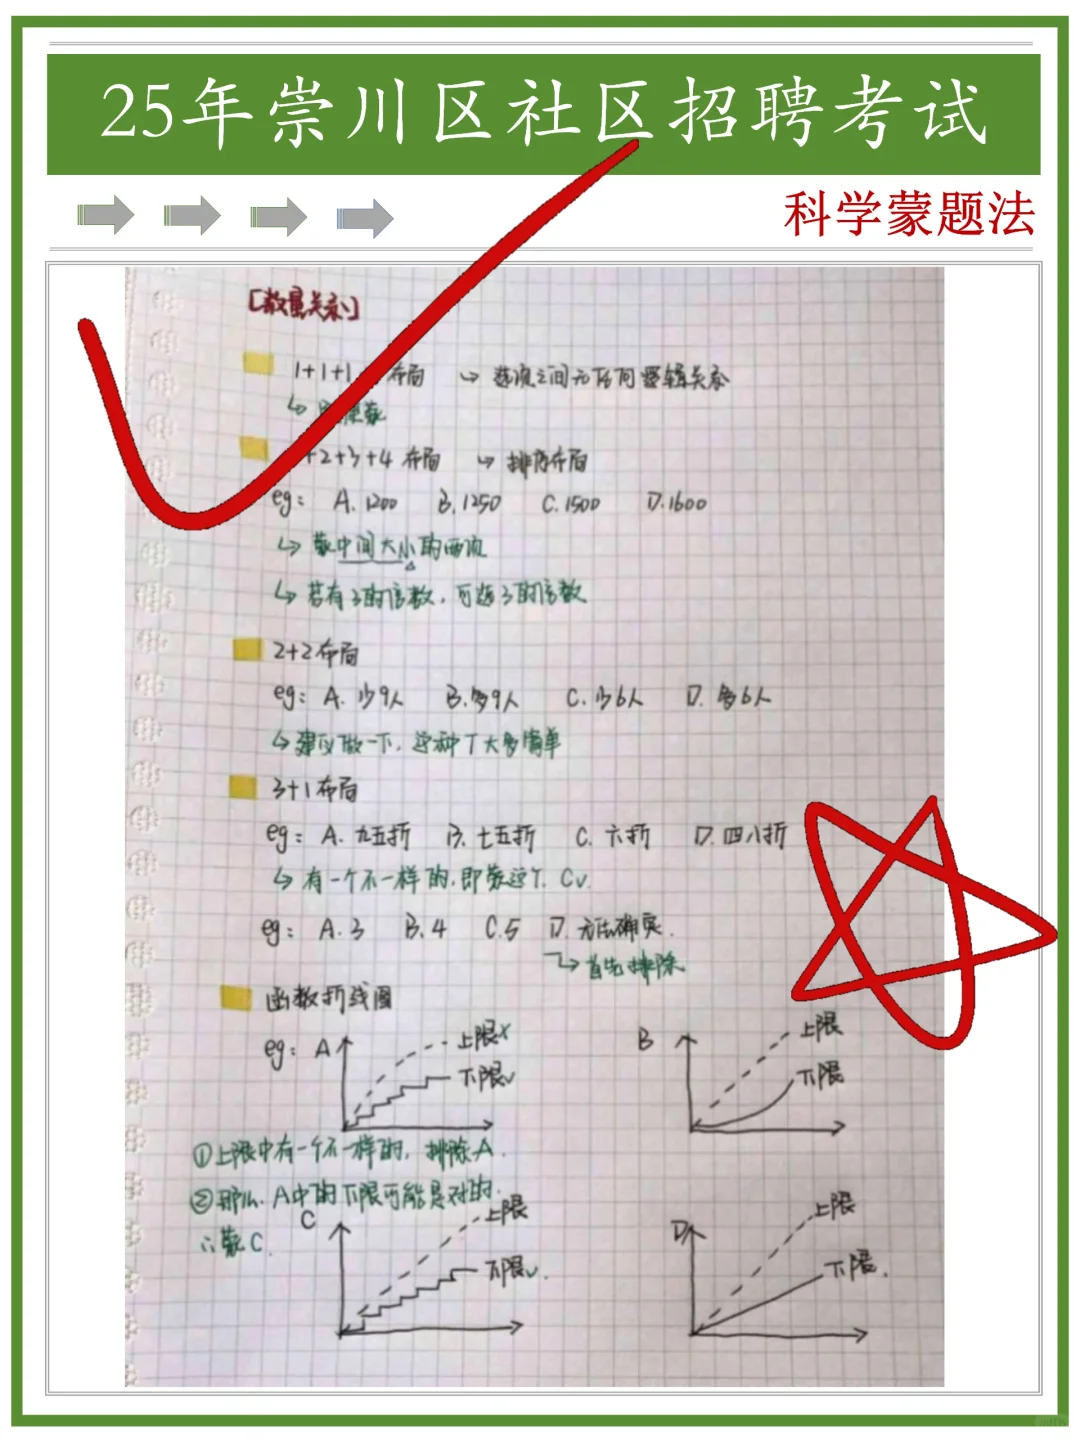 25年崇川区社区招聘考试
科学蒙题法
[数量关系]
1+1+1 布局 ↳ 选项之间无任何逻辑关系
↳ 蒙
+2+3+4 布局 ↳ 排序布局
eg: A. 1200 B. 1250 C. 1500 D. 1600
↳ 蒙中间大小的两项
↳ 若有3的倍数,可选3的倍数
2+2布局
eg: A. 少9人 B. 多9人 C. 少6人 D. 多6人
↳ 建议做一下,这种丁大多简单
3+1布局
eg: A. 九五折 B. 七五折 C. 六折 D. 四八折
↳ 有一个不一样的,即蒙这个. C√.
eg: A. 3 B. 4 C. 5 D. 无法确定.
↳ 首先排除
函数折线图
eg: A 上限× 下限√
B 上限 下限
①上限中有一个不一样的, 排除A.
②那么, A中的下限可能是对的.
∴蒙C.
C 上限 下限√.
D 上限 下限.